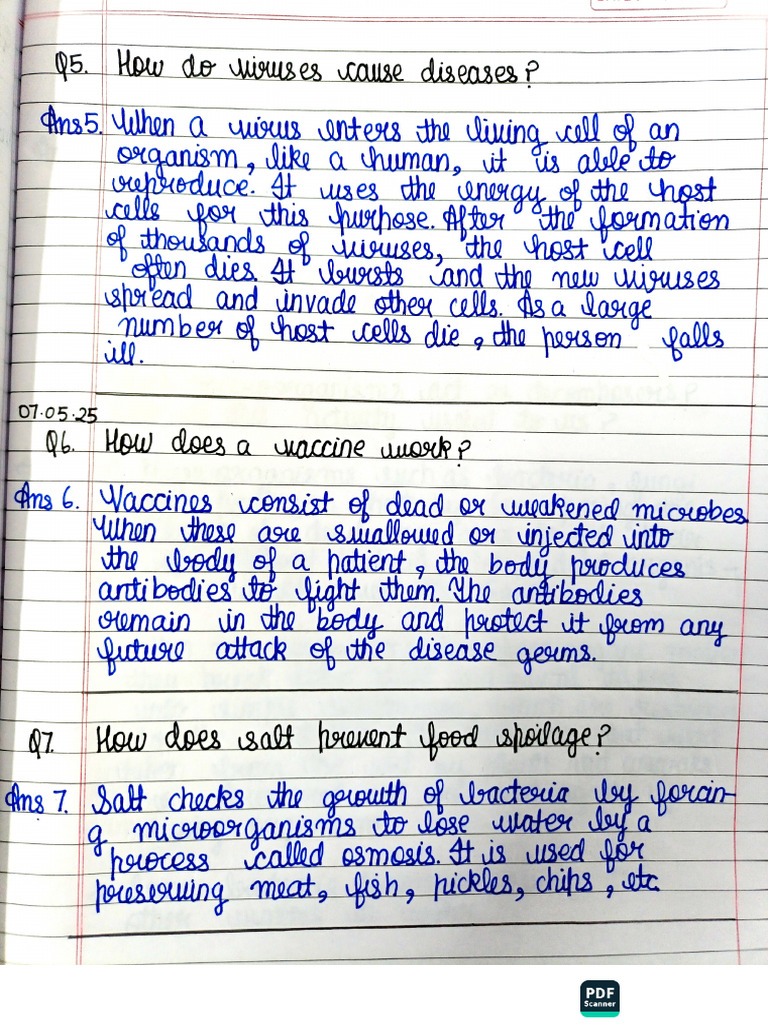 Q5. How do viruses cause diseases?
Ans5. When a virus enters the living cell of an
organism, like a human, it is able to
reproduce. It uses the energy of the host
cells for this purpose. After the formation
of thousands of viruses, the host cell
often dies. It bursts and the new viruses
spread and invade other cells. As a large
number of host cells die, the person falls
ill.
07.05.25
Q6. How does a vaccine work?
Ans 6. Vaccines consist of dead or weakened microbes.
When these are swallowed or injected into
the body of a patient, the body produces
antibodies to fight them. The antibodies
remain in the body and protect it from any
future attack of the disease germs.
Q7. How does salt prevent food spoilage?
Ans 7. Salt checks the growth of bacteria by forcin-
g microorganisms to lose water by a
process called osmosis. It is used for
preserving meat, fish, pickles, chips, etc
PDF
Scanner